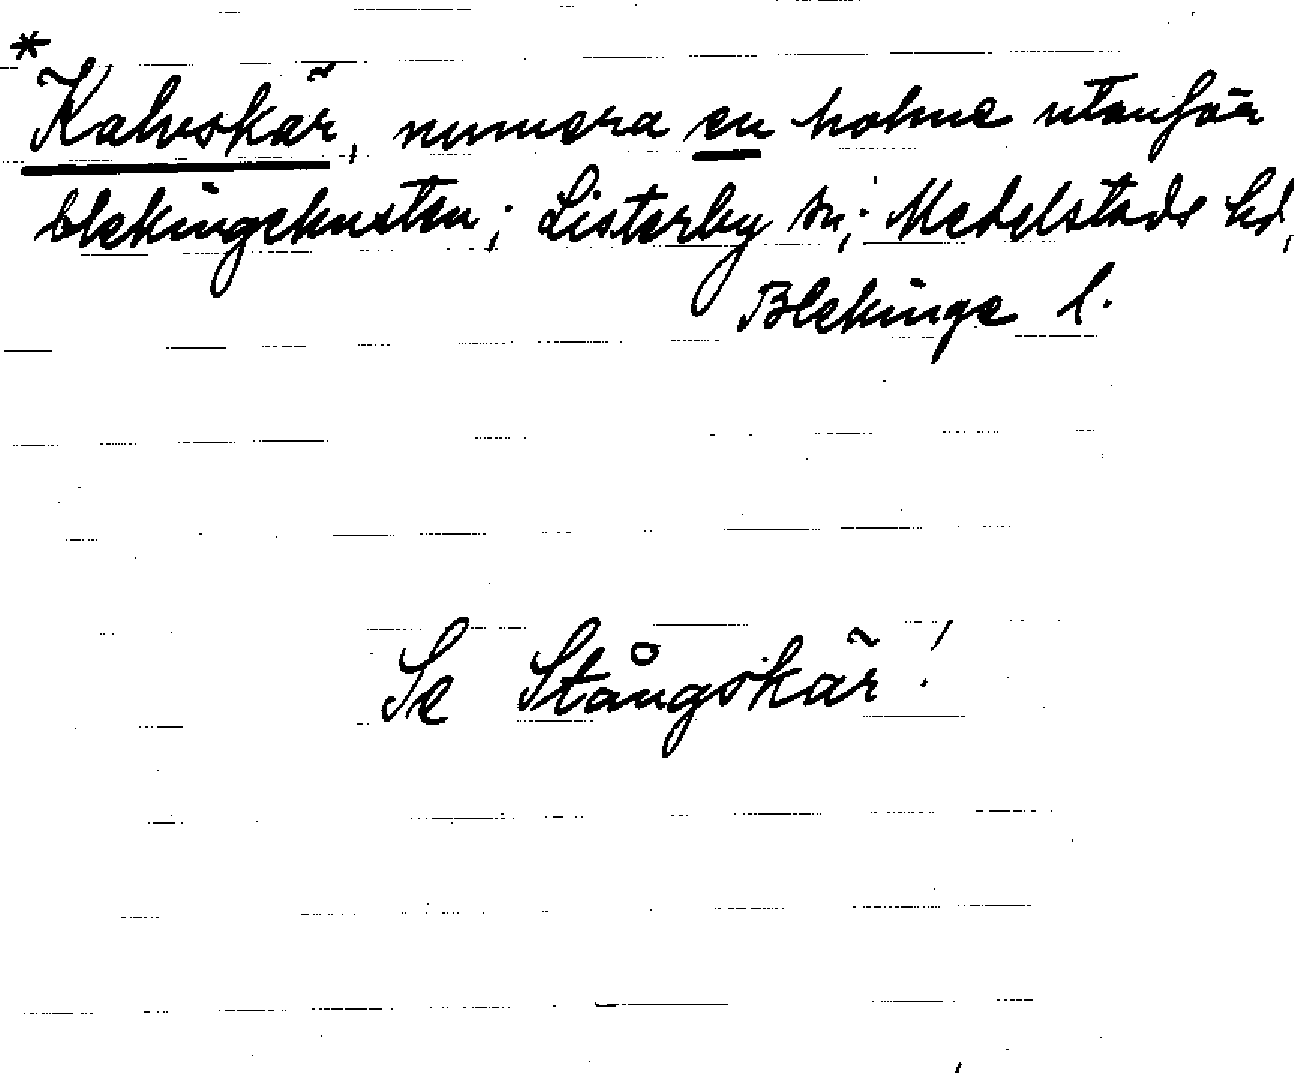 * Kalvskär, numera en holme utanför
blekingekusten; Listerby sn; Medelstads hd,
Blekinge l.
Se Stångskär!